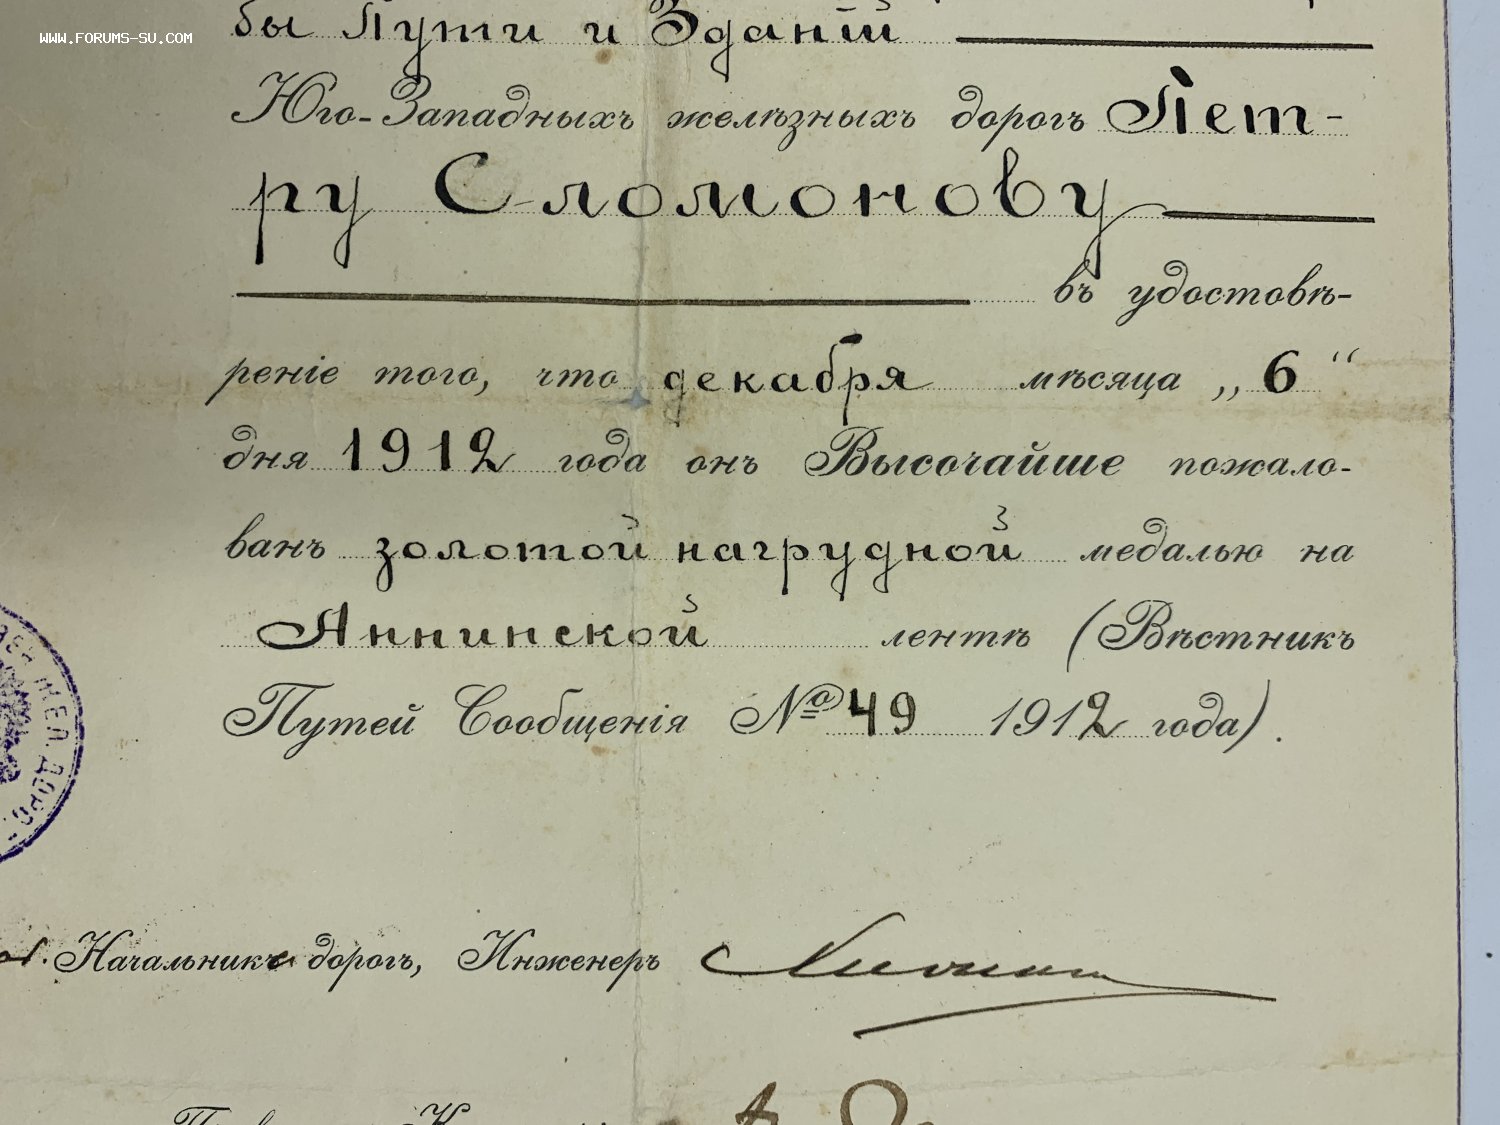 WWW.FORUMS-SU.COM
бы Пути и Зданій
Юго-Западныхъ желѣзныхъ дорогъ Пет-
ру Сломонову
въ удостовѣ-
реніе того, что декабря мѣсяца „6“
дня 1912 года онъ Высочайше пожало-
ванъ золотой нагрудной медалью на
Аннинской лентѣ (Вѣстникъ
Путей Сообщенія № 49 1912 года).
ЖЕЛ. ДОРО
Начальника дорогъ, Инженеръ